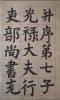 并序第七子
光禄大夫行
吏部尚書充